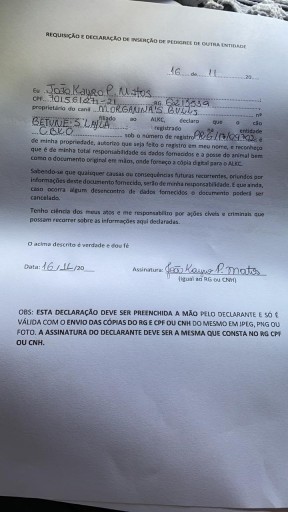 REQUISIÇÃO E DECLARAÇÃO DE INSERÇÃO DE PEDIGREE DE OUTRA ENTIDADE
16 de 11 20
Eu João Kayro P. Matos
CPF RG
proprietário do canil MORGANNA'S BULLS nº
filiado ao ALKC, declaro que o cão
registrado entidade
CBKO sob o número de registro é
de minha propriedade, autorizo que seja feito o registro em meu nome, e reconheço
que é de minha total responsabilidade os dados fornecidos e a posse do animal bem
como o documento original em mãos, onde forneço a cópia digital para o ALKC.
Sabendo-se que qualquer causas ou consequências futuras recorrentes, oriundos por
informações deste documento fornecido, serão de minha responsabilidade. E que ainda,
caso ocorra algum desencontro de dados fornecidos o documento poderá ser
cancelado.
Tenho ciência dos meus atos e me responsabilizo por ações cíveis e criminais que
possam recorrer sobre as informações aqui declaradas.
O acima descrito é verdade e dou fé
Data: 16/11/20 Assinatura: João Kayro P. matos
(igual ao RG ou CNH)
OBS: ESTA DECLARAÇÃO DEVE SER PREENCHIDA A MÃO PELO DECLARANTE E SÓ É
VÁLIDA COM O ENVIO DAS CÓPIAS DO RG E CPF OU CNH DO MESMO EM JPEG, PNG OU
FOTO. A ASSINATURA DO DECLARANTE DEVE SER A MESMA QUE CONSTA NO RG CPF
OU CNH.